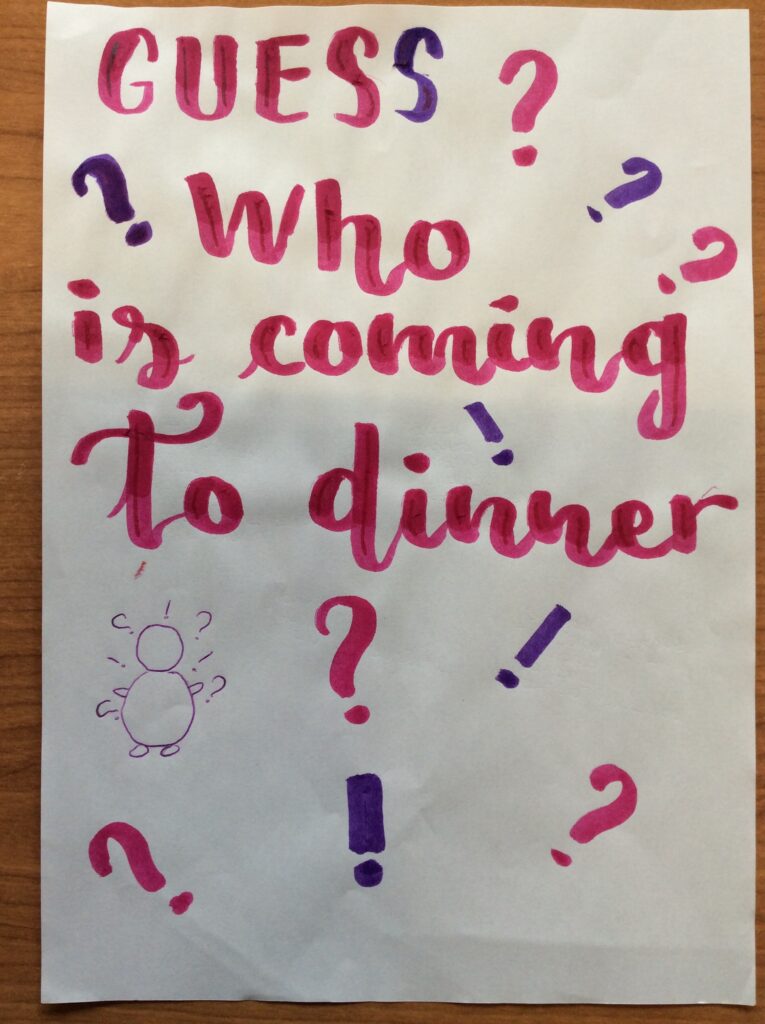 GUESS ?
? Who ?
?
is coming
!
To dinner
? ! ?
? !
?
! ?
?